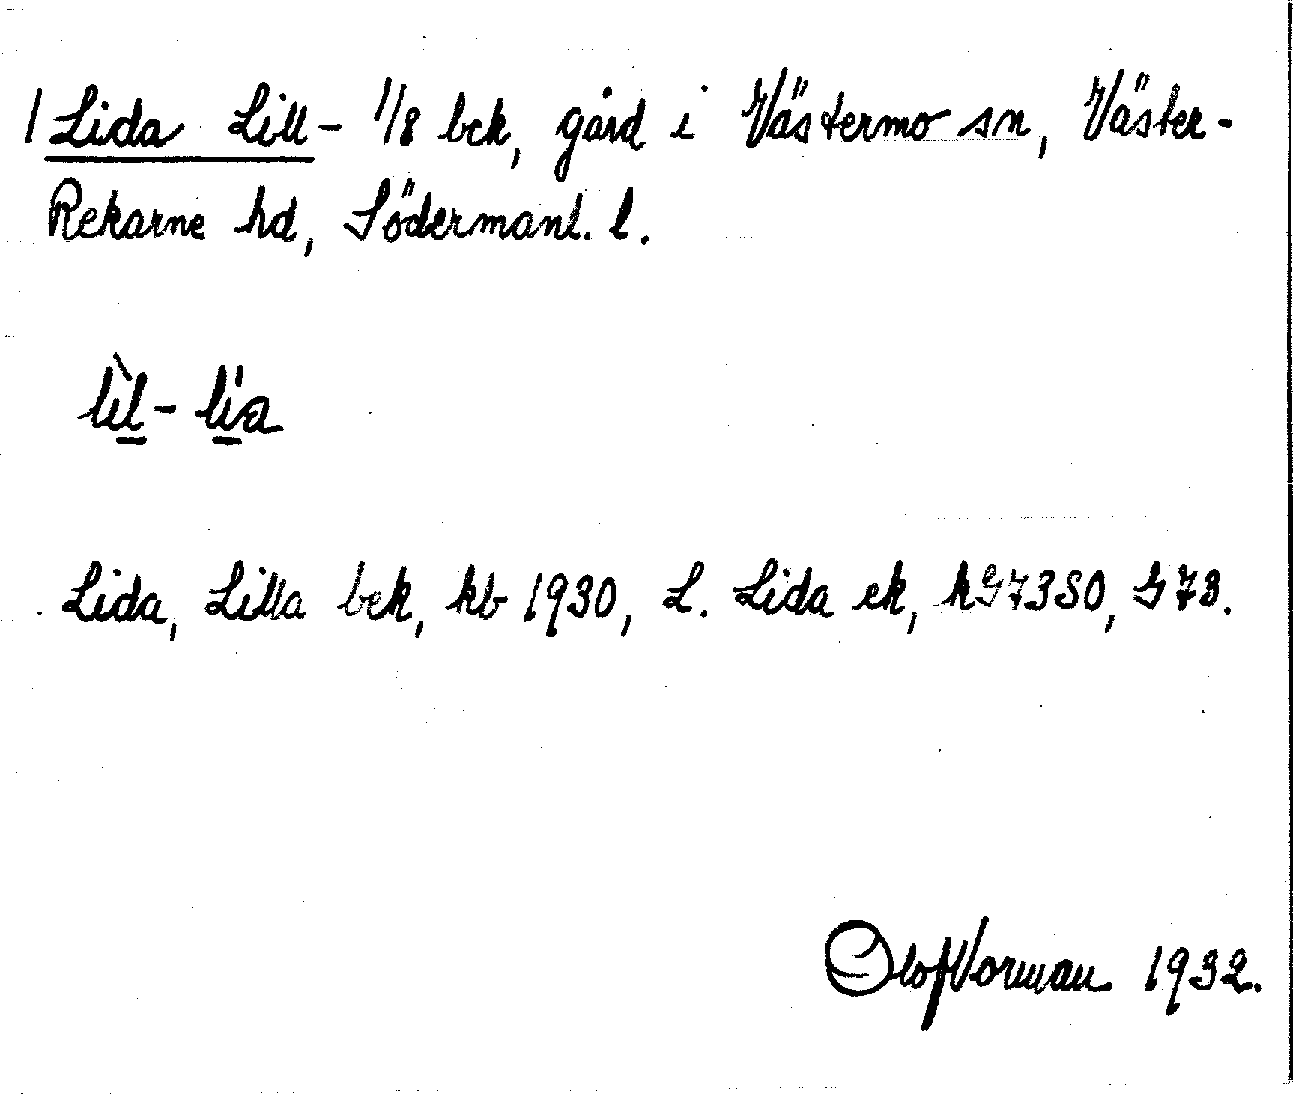 1 Lida Lill- 1/8 bck, gård i Västermo sn, Väster-
Rekarne hd, Södermanl. l.
lìl- lía
Lida, Lilla bek, kb 1930, L. Lida ek, hS7380, G 73.
Olof Vorman 1932.